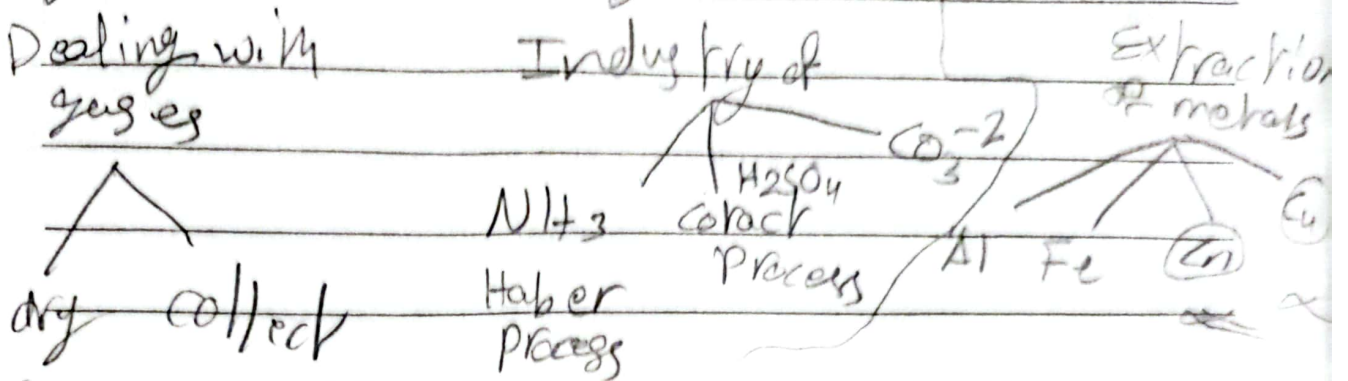 Dealing with
gases
dry collect
Industry of
NH3
Haber
process
H2SO4
Cotact
process
CO3-2
Extraction
of metals
Al Fe Zn Cu